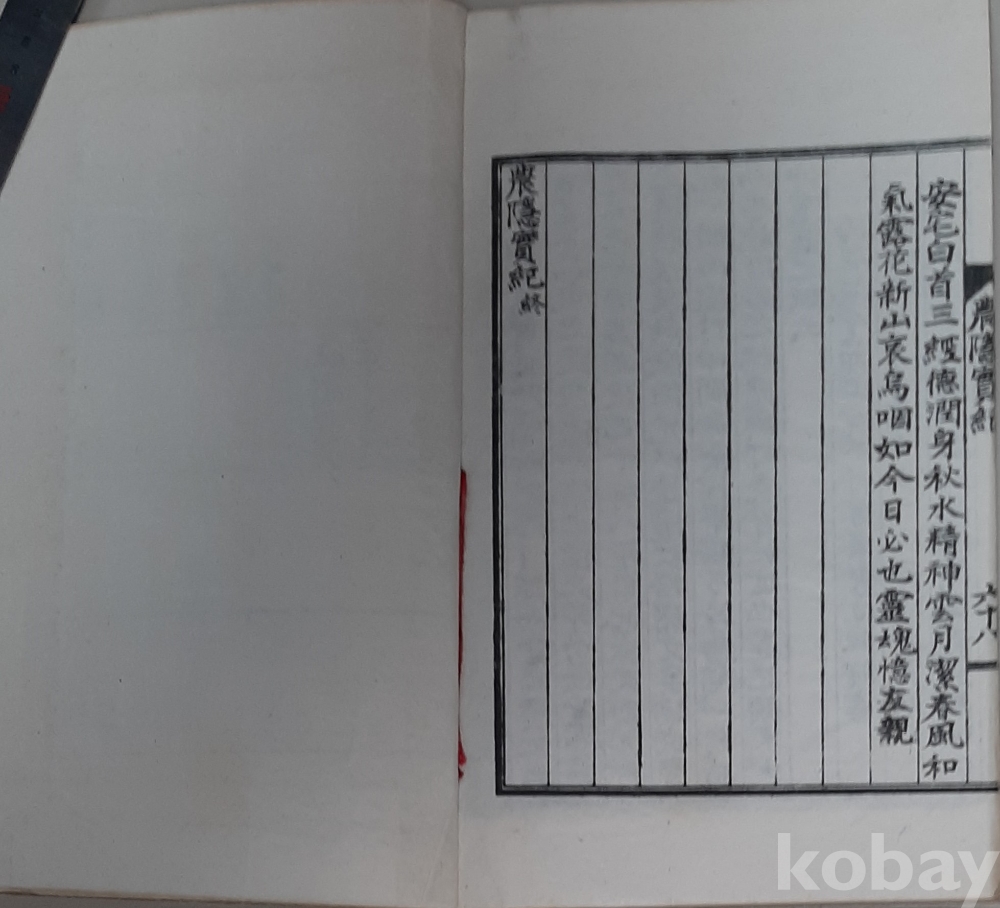 農隱實紀
六十八
安宅白首三經德潤身秋水精神雲月潔春風和
氣露花新山哀烏咽如今日必也靈魂憶友親
農隱實紀 終
kobay